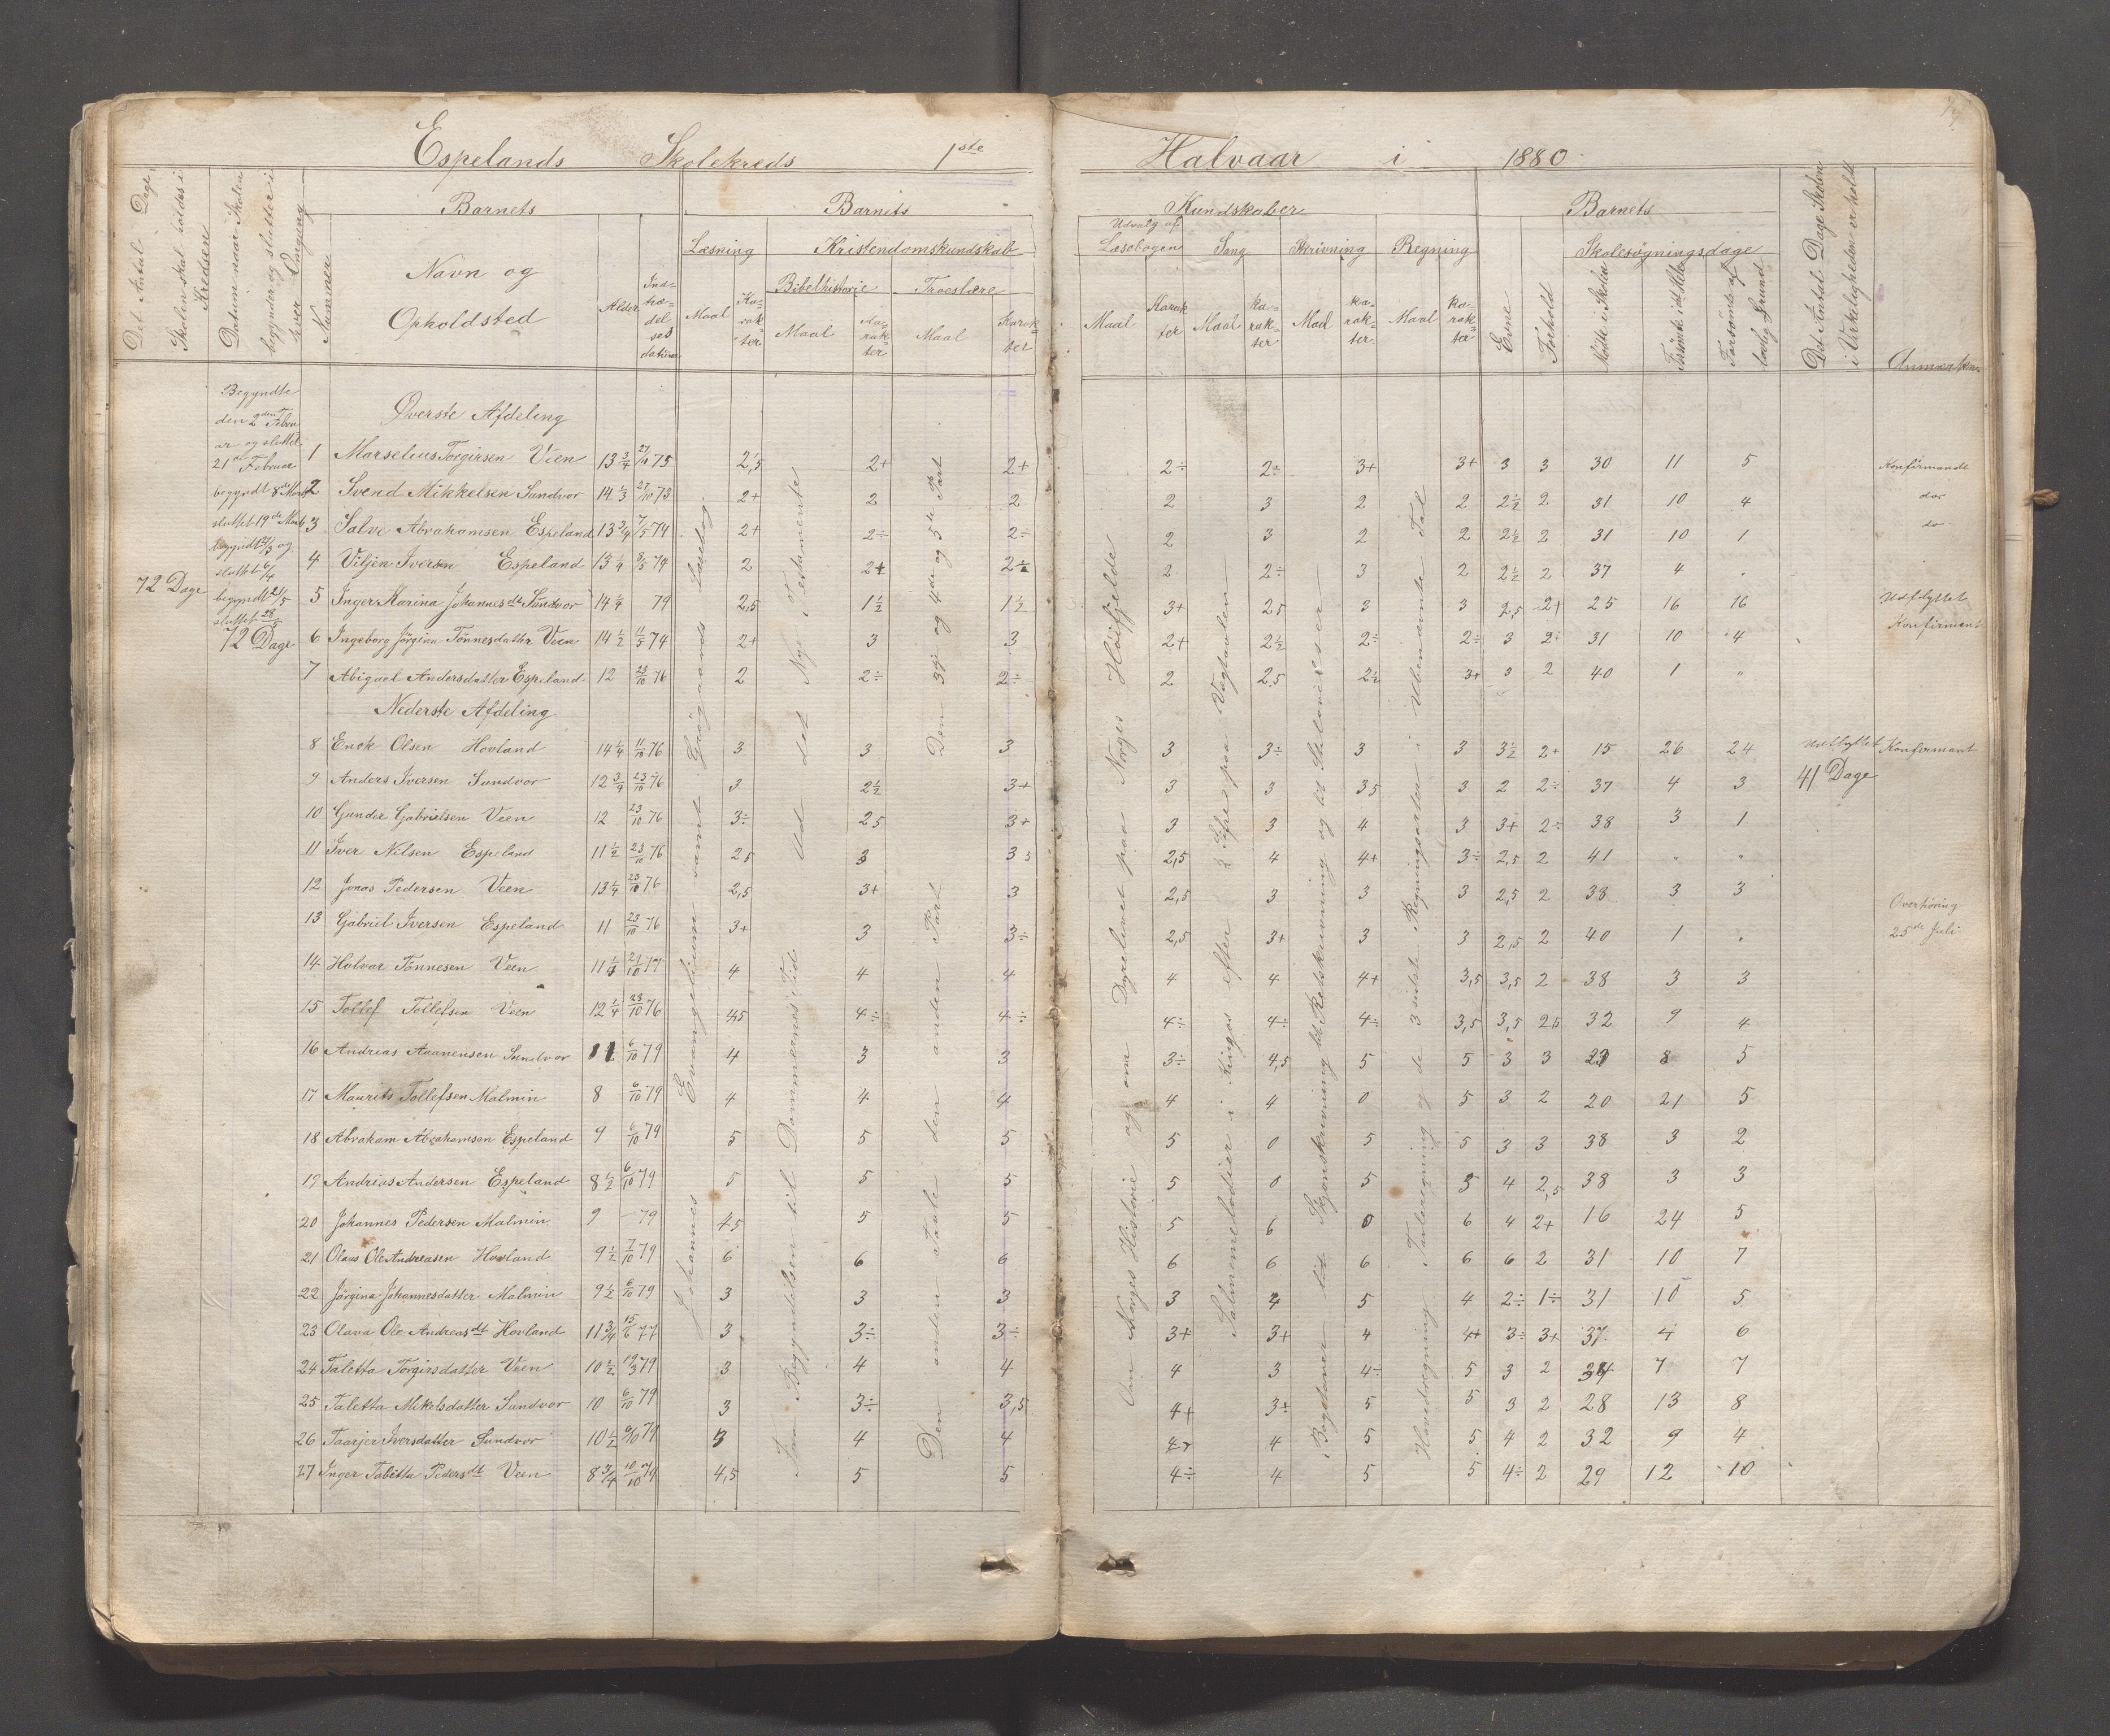 Espelands Skolekreds 1ste Halvaar i 1880.
Det Antal Dage, Skolen skal holdes i Kredsen
Datum naar Skolen begynder og slutter i hver Omgang
Nummer
Barnets
Navn og
Opholdsted
Alder
Ind-
træ-
del-
ses
datum
Barnets Kundskaber
Læsning
Maal
Ka-
rak-
ter
Kristendomskundskab
Bibelhistorie
Maal
Ka-
rak-
ter
Troeslære
Maal
Karak-
ter
Udvalg af
Læsebogen
Maal
Karak
ter
Sang
Maal
Ka-
rak-
ter
Skrivning
Maal
Ka-
rak-
ter
Regning
Maal
Ka-
rak-
ter
Barnets
Evne
Forhold
Skolesøgningsdage
Mødte i Skolen
Forsømte i det Hele
Forsømte af lovlig Grund
Det Antal Dage Skolen i Virkeligheden er holdt
Anmærkn.
72 Dage
Begyndte
den 2den Febru
ar og sluttet
21de Februar
begyndt 8de Marts
sluttet 19de Marts
begyndt og
sluttet 6/4
begyndt 21/5
sluttet 28/5
72 Dage
Øverste Afdeling
1 Marselius Torgirsen Veen 13 3/4 75 2,5 2+ 2+ 2÷ 2÷ 3+ 3+ 3 3 30 11 5 Konfirmandt
2 Svend Mikkelsen Sundvor 14 1/3 27/10 73 2+ 2 2 2 3 2 2 2 1/2 2 31 10 4 do
3 Salve Abrahamsen Espeland 13 3/4 7/5 74 2+ 2÷ 2÷ 2 3 2 2 2 1/2 2 31 10 1 do
4 Viljen Iversen Espeland 13 1/4 8/5 74 2 2+ 2÷ 2 2÷ 3 2 2 1/2 2 37 4 .
5 Inger Karina Johannesdt Sundvor 14 1/4 79 2,5 1 1/2 1 1/2 3+ 2,5 3 3 2,5 2+ 25 16 16 Udflyttet
Konfirmant
6 Ingeborg Jørgina Tønnesdattr Veen 14 1/2 11/5 74 2+ 3 3 2+ 2 1/2 2÷ 2÷ 3 2÷ 31 10 4
7 Abigael Andersdatter Espeland 12 23/10 76 2 2÷ 2÷ 2 2,5 2 1/2 3+ 3 2 40 1 "
Nederste Afdeling
8 Enok Olsen Hovland 14 1/4 11/10 76 3 3 3 3 3÷ 3 3 3 1/2 2+ 15 26 24 Udflyttet Konfirmant
9 Anders Iversen Sundvor 12 3/4 23/10 76 3 2 1/2 3+ 3 3 3,5 3 2 2÷ 37 4 3 41 Dage
10 Gunder Gabrielsen Veen 12 23/10 76 3÷ 2,5 3+ 3 3 4 3 3+ 2÷ 38 3 1
11 Iver Nilsen Espeland 11 1/2 23/10 76 2,5 3 3 2,5 4 4+ 3÷ 2,5 2 41 " "
12 Jonas Pedersen Veen 13 1/4 23/10 76 2,5 3+ 3 2,5 3 3 3 2,5 2 38 3 3
13 Gabriel Iversen Espeland 11 23/10 76 3+ 3 3÷ 2,5 3+ 3 3 2,5 2 40 1 . Overhøring
25de Juli
14 Holvar Tønnesen Veen 11 1/4 21/10 79 4 4 4 4 4 4+ 3,5 3,5 2 38 3 3
15 Tollef Tollefsen Veen 12 1/4 23/10 76 4,5 4÷ 4÷ 4÷ 4÷ 4÷ 3,5 3,5 2,5 32 9 4
16 Andreas Aanensen Sundvor 6/10 79 4 3 3 3÷ 4,5 5 5 3 3 8 5
17 Maurits Tollefsen Malmin 8 6/10 79 4 4 4 4 4 0 5 3 2 20 21 5
18 Abraham Abrahamsen Espeland 9 6/10 79 5 5 5 5 0 5 5 3 3 38 3 2
19 Andrias Andersen Espeland 8 1/2 6/10 79 5 5 5 5 0 5 5 4 2,5 38 3 3
20 Johannes Pedersen Malmin 9 – 79 4,5 5 5 5 6 0 6 4 2+ 16 24 5
21 Olaus Ole Andreasen Hovland 9 1/2 7/10 79 6 6 6 6 6 6 6 6 2 31 10 7
22 Jørgina Johannesdatter Malmin 9 1/2 6/10 79 3 3 3 3 4 5 4 2÷ 1÷ 31 10 5
23 Olava Ole Andreasdt Hovland 11 3/4 15/6 77 3 3÷ 3÷ 3+ 3+ 4 4+ 3÷ 3+ 37 4 6
24 Taletta Torgirsdatter Veen 10 1/2 19/3 79 3 4 4 4 3 4÷ 5 3 2 34 7 7
25 Taletta Mikelsdatter Sundvor 10 6/10 79 3 3÷ 3,5 4+ 3+ 5 5 3 2 28 13 8
26 Taarjer Iversdatter Sundvor 10 1/2 6/10 79 3 4 4 4+ 4 5 5 4 2 32 9 4
27 Inger Tabitta Pedersdt Veen 8 3/4 79 4,5 5 5 4÷ 4 5 5 4÷ 2 29 12 10
Johannes Evangelium samt Grøgaards Læsebog
Fra Begyndelsen til Dommernes Tid. Ud det Nye Testamente
Den anden Tavle den anden Part Den 3die og 4de og 5te Part
Om Norges Historie og om Dyrelivet paa Norges Høifjelde
Salmemelodier i Kirgos efter Sifre paa Vægtavlen
Bogstaver lit Skjønskrivning lit Retskrivning og lit Stiløvelser
Hovedregning Tavleregning og de 3 sidste Regningsarter i Ubenævnte Tal